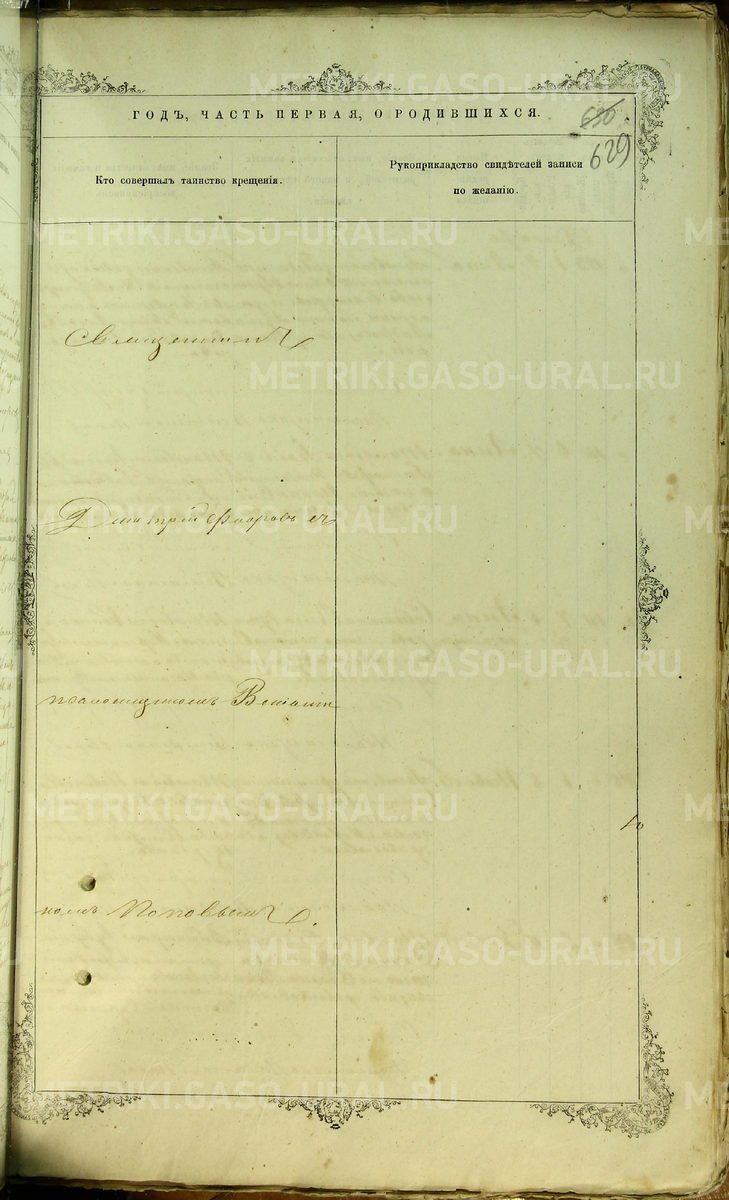 METRIKI.GASO-URAL.RU
ГОДЪ, ЧАСТЬ ПЕРВАЯ, О РОДИВШИХСЯ.
630
629
Кто совершалъ таинство крещенія.
Рукоприкладство свидѣтелей записи
по желанію.
Священникъ
Дмитрій съ
псаломщикомъ Веніами
номъ Поповымъ.